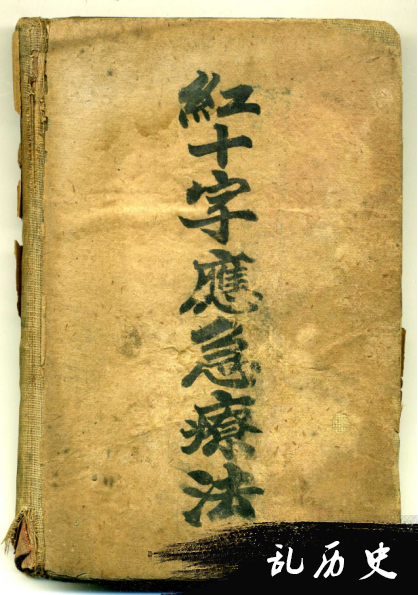 紅十字應急療法
乱历史